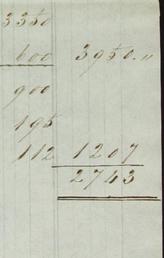 3350
600 3950.,,
900
195
112 1207
2743